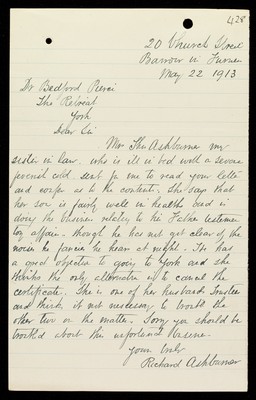 428
20 Church Street
Barrow in Furness
May 22 1913
Dr Bedford Pierce
The Retreat
York
Dear Sir
Mrs Thos Ashburner my
sister in law, who is ill in bed with a severe
feverish cold, sent for me to read your letter
and confer as to the contents. She says that
her son is fairly well in health and is
doing the business relating to his Father
affairs though he has not got clear of the
noise he fancies he hears at night. He has
a great objection to going to York and she
thinks the only alternative is to cancel the
certificate. She is one of her husbands Trustees
and thinks it not necessary to trouble the
other two in the matter. Sorry you should be
troubled about this unfortunate
Yours truly
Richard Ashburner